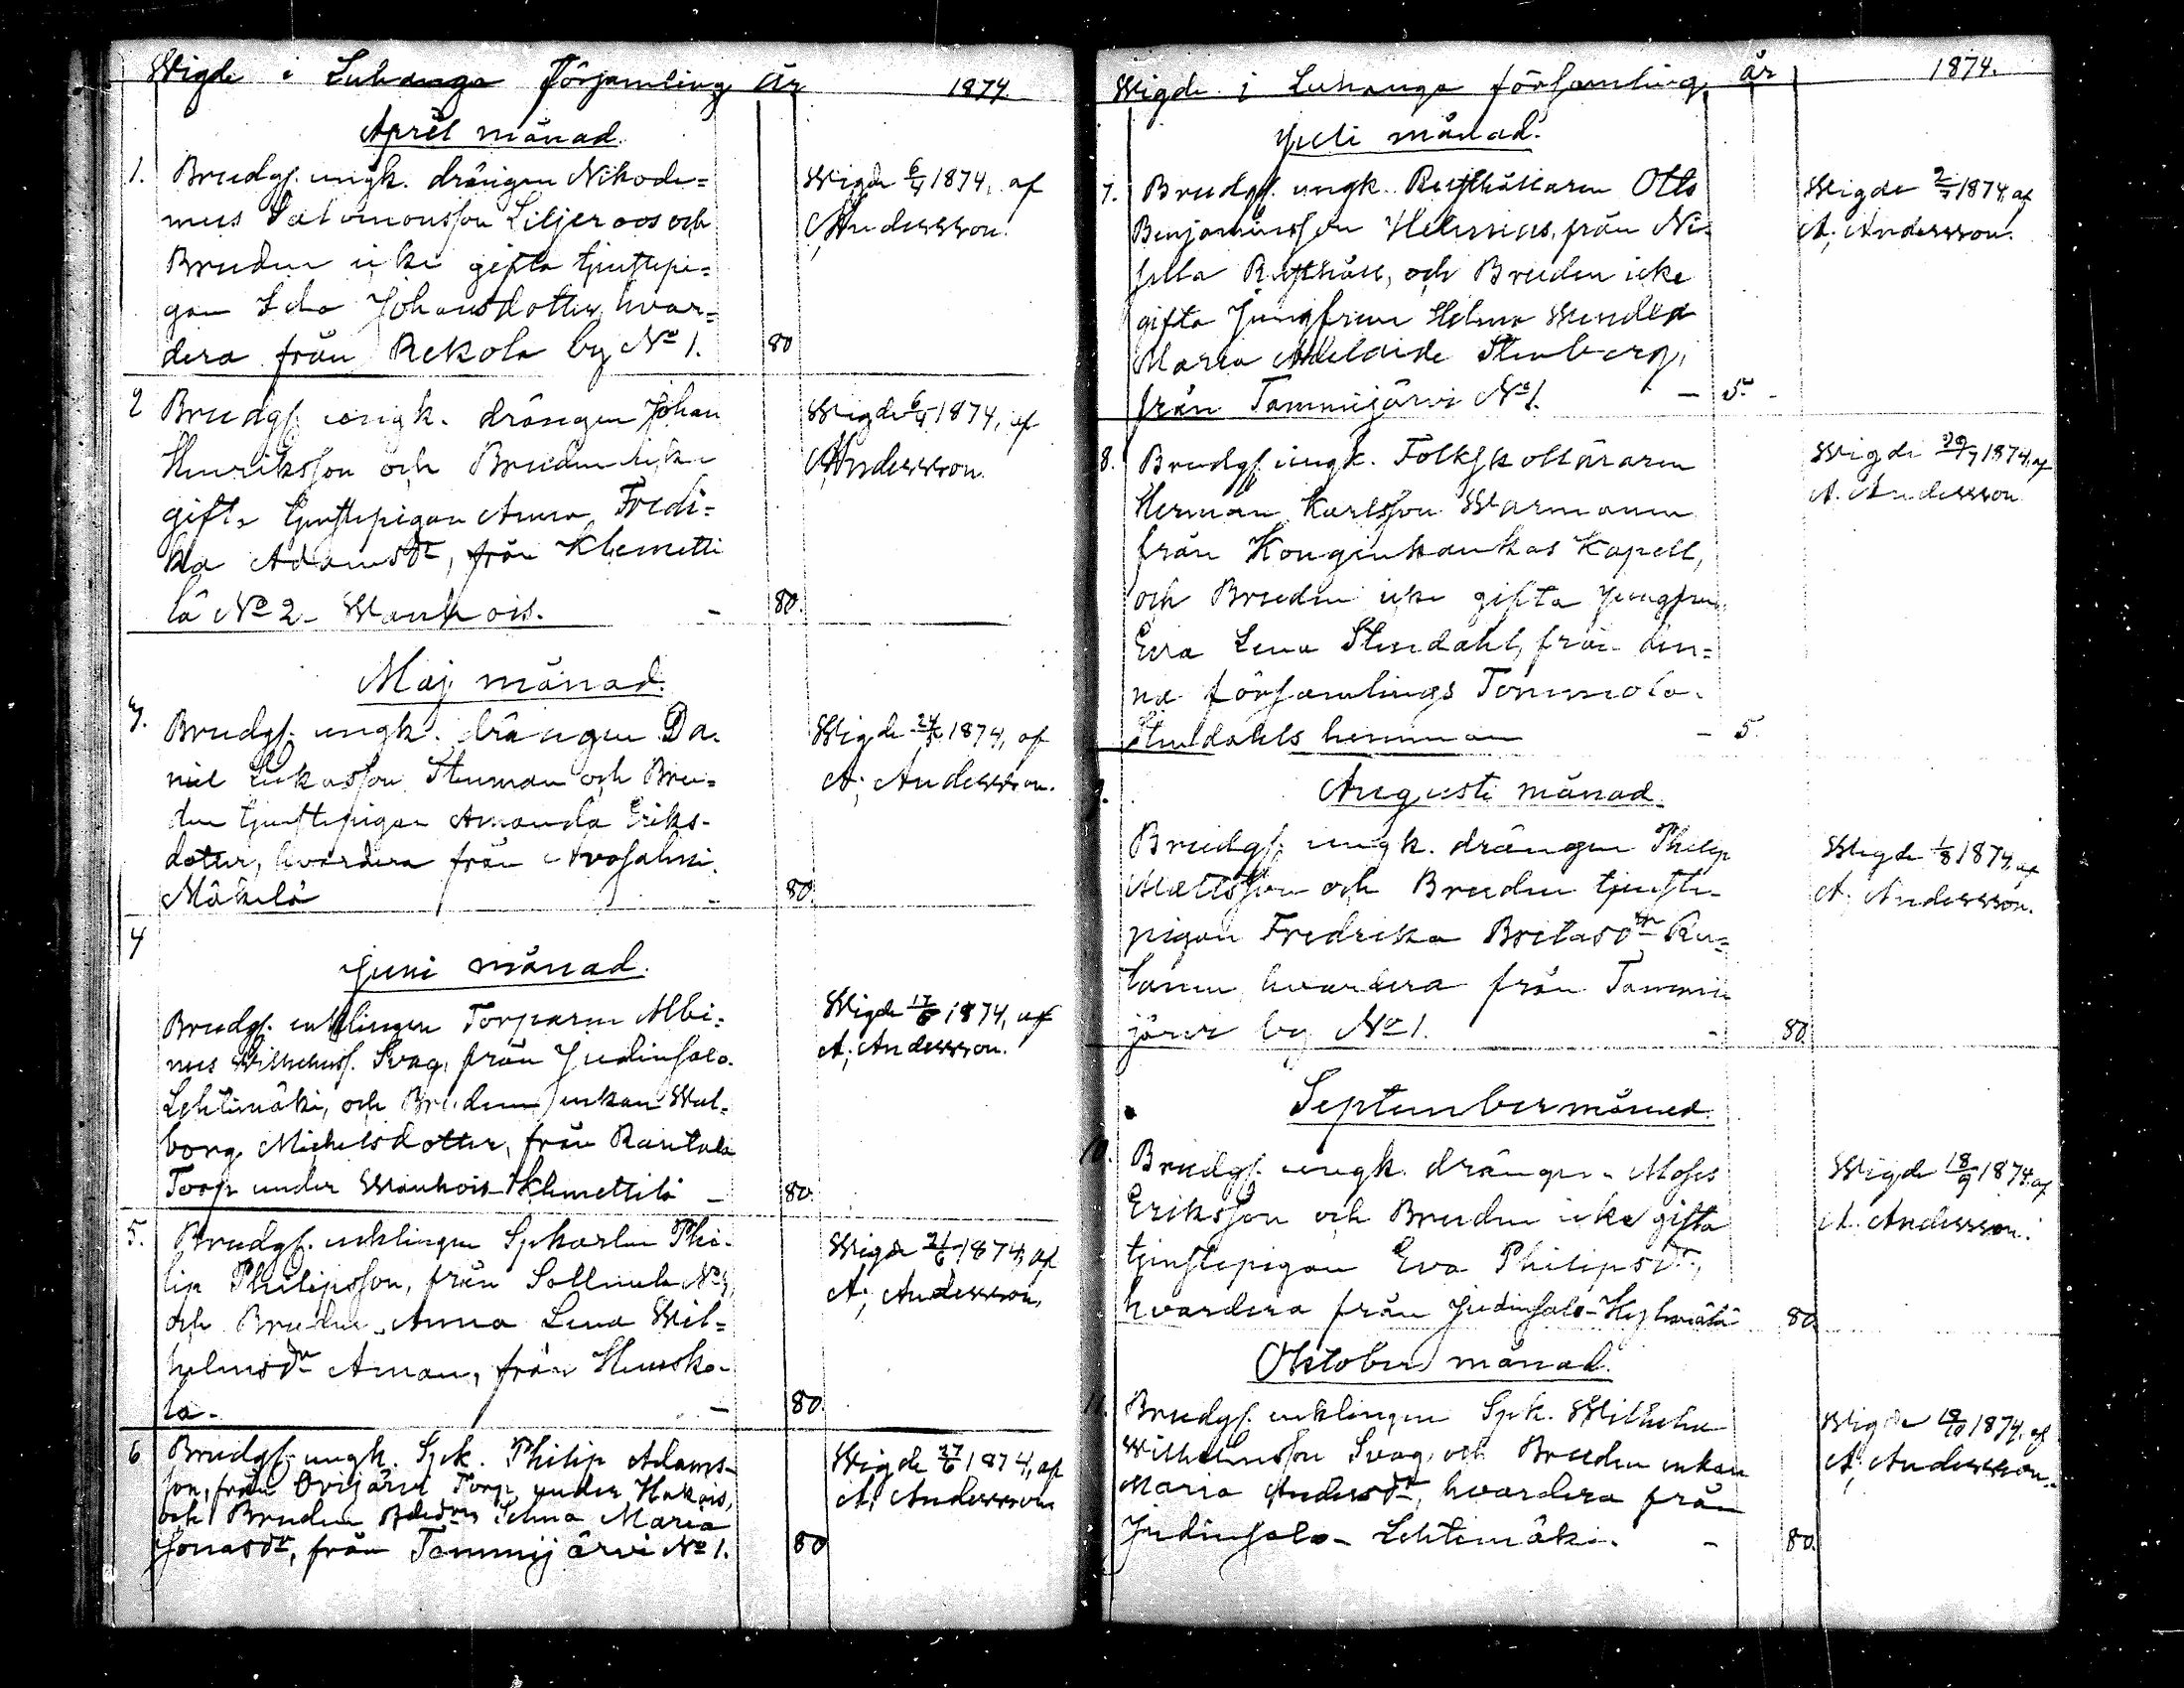 Wigde i Luhanga Församling år 1874
April månad.
1. Brudgs. ungk. drängen Nikode=
mus Salomonsson Liljeroos och
Bruden icke gifta tjenstepi=
gan Ida Johansdotter, hvar=
dera från Rekola by No 1. 80
Wigde 6/4 1874, af
A. Andersson.
2 Brudgs. ungk. drängen Johan
Henriksson och Bruden icke
gifta tjenstepigan Anna Fredi=
ka Adamsdr, från Klemetti
lä No 2 - Wanhois. - 80.
Wigde 6/4 1874, af
A. Andersson.
Maj månad.
3. Brudgs. ungk. drängen Da=
niel Lukasson Stenman och Bru=
den tjenstepigan Amanda Eriks-
dotter, hvardera från Avosalmi.
Mäkelä - 80.
Wigde 24/5 1874, af
A. Andersson.
4
Juni månad.
Brudgs. enklingen Torparen Albi=
nus Wilhelmss. Svag, från Judinsalo-
Lehtimäki, och Bruden enkan Wal=
borg Michelsdotter, från Rantala
Torp under Wanhois-Klemettilä - 80.
Wigde 17/6 1874, af
A. Andersson.
5. Brudgs. enklingen Spkarlen Phi-
lip Philipsson, från
och Bruden Anna Lena Wil=
helmsdr Aman, från
la. - 80.
Wigde 21/6 1874, af
A. Andersson.
6 Brudgs. ungk. Spk. Philip Adams-
son, från Orijärvi Torp under Hakois,
och Bruden Selma Maria
Jonasdr, från Tammijärvi No 1. 80
Wigde 27/6 1874, af
A. Andersson
Wigde i Luhanga församling år 1874.
Juli månad.
7. Brudgs. ungk. Rusthållaren Otto
Benjaminsson Helenius, från Ni=
silla Rusthåll, och Bruden icke
gifta Jungfrun Helena Wendla
Maria Adelaide Stenberg,
från Tammijärvi No 1. - 5. -
Wigde 2/7 1874, af
A. Andersson.
8. Brudgs. ungk. Folkskolläraren
Herman Karlsson Warmanen
från Konginkankas Kapell,
och Bruden icke gifta Jungfrun
Eva Lena Stendahl, från den=
na församlings Tommola-
Stendahls hemman - 5.
Wigde 29/7 1874, af
A. Andersson
9. Augusti månad.
Brudgs. ungk. drängen Philip
Mattsson och Bruden tjenste-
pigan Fredrika Britasdr Ru=
tanen, hvardera från Tammi
järvi by No 1. - 80.
Wigde 1/8 1874, af
A. Andersson.
September månad.
10. Brudgs. ungk. drängen Moses
Eriksson och Bruden icke gifta
tjenstepigan Eva Philipsdr,
hvardera från Judinsalo-Kylmälä 80.
Wigde 18/9 1874, af
A. Andersson.
Oktober månad.
11. Brudgs. enklingen Spk. Wilhelm
Wilhelmsson Svag, och Bruden enkan
Maria Andersdr, hvardera från
Judinsalo- Lehtimäki. - 80.
Wigde 18/10 1874, af
A. Andersson.